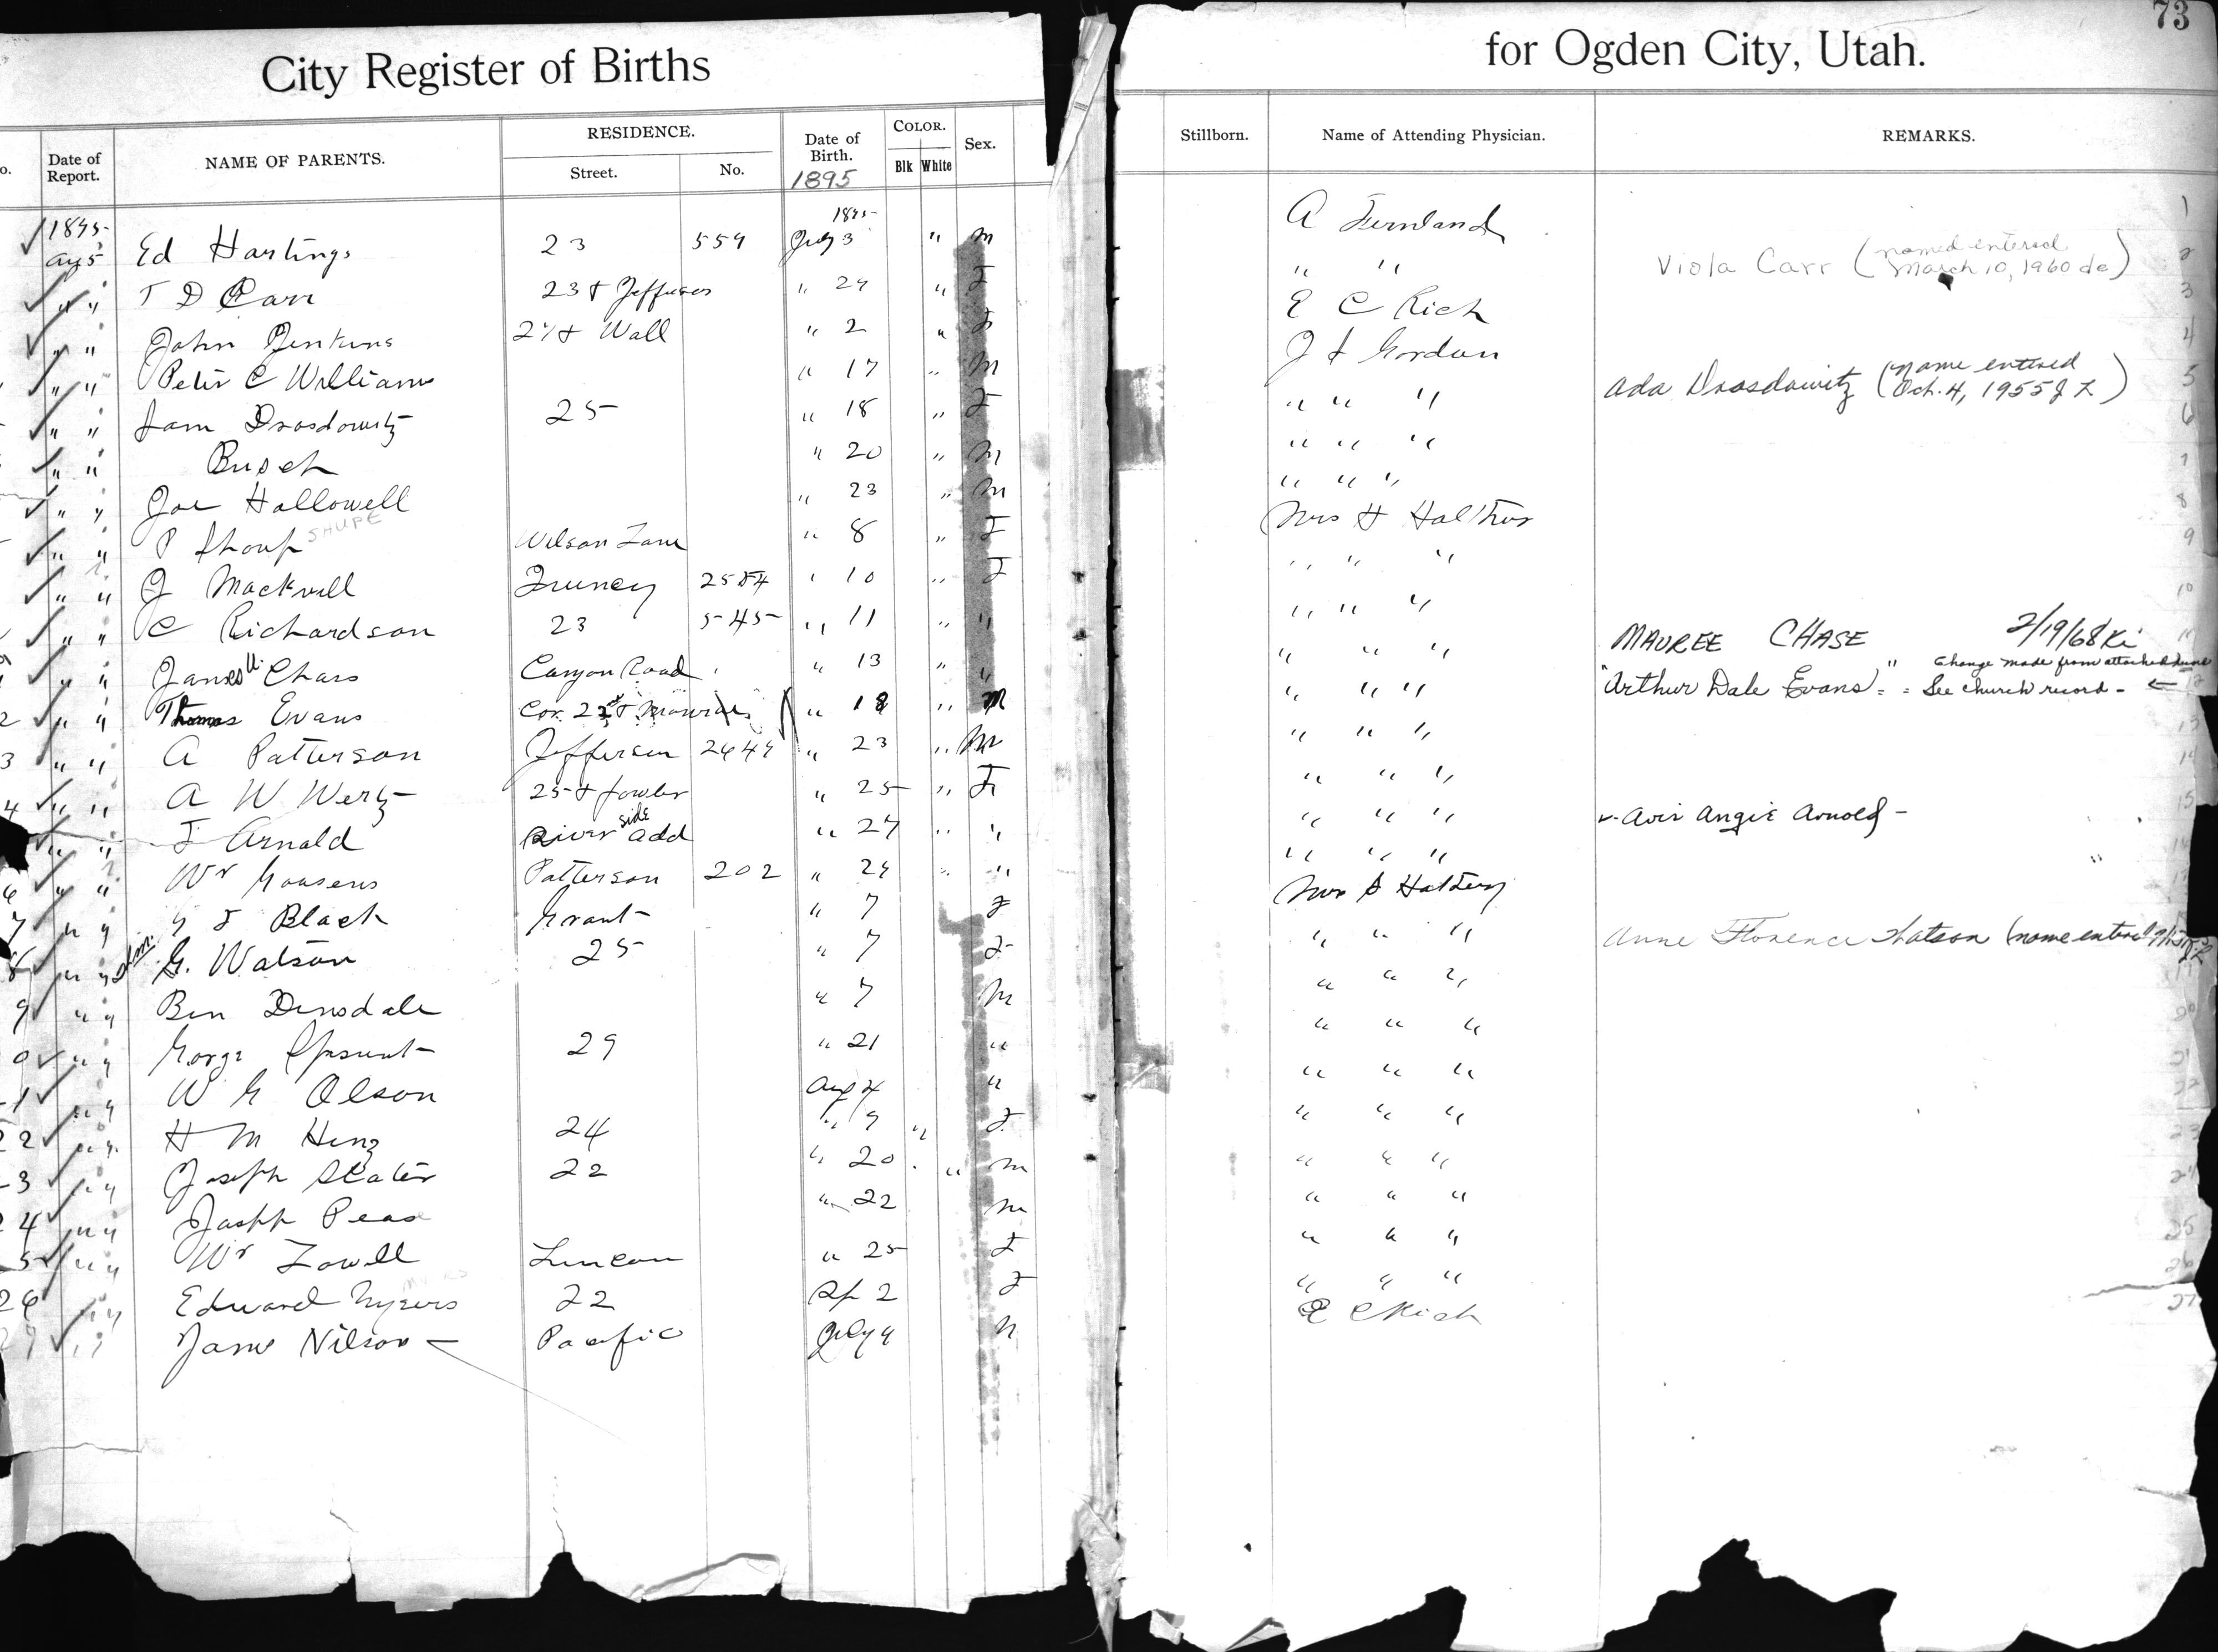 73
City Register of Births for Ogden City, Utah.
o. Date of Report. NAME OF PARENTS. RESIDENCE. Street. No. Date of Birth. 1895 COLOR. Blk White Sex. Stillborn. Name of Attending Physician. REMARKS.
1895 1895
✓ Aug 5 Ed Hastings 23 559 July 3 " M A Fernlund 1
✓ " " T D Carr 23 & Jefferson " 29 " F " " Viola Carr (named entered March 10, 1960 de) 2
✓ " " John Jenkins 27 & Wall " 2 " F E C Rich 3
✓ " " Peter C Williams " 17 " M J F Gordon 4
✓ " " Sam Drosdowitz 25 " 18 " F " " " Ada Drosdowitz (name entered Oct. 4, 1955 J L) 5
✓ " " Busch " 20 " M " " " 6
✓ " " Joe Hallowell " 23 " M " " " 7
✓ " " P Shoup SHUPE Wilson Lane " 8 " F Mrs H Halther 8
✓ " " J Mackrell 2584 " 10 " F " " " 9
✓ " " C Richardson 23 545 " 11 " " " " " 10
✓ " " James Chase Canyon Road " 13 " " " " " MAUREE CHASE 2/19/68 Ki 11
2 " " Thomas Evans Cor. 22 & Monroe " 18 " M " " " "Arthur Dale Evans" = = See church record - ← Change made from attached 12
3 " " A Patterson Jefferson 2649 " 23 " M " " " 13
4 ✓ " " A W Wertz 25 & Fowler " 25 " F " " " 14
✓ " " F Arnold River side add " 27 " " " " " ✓- Avis Angie Arnold - 15
6 ✓ " " Wm Goosens Patterson 202 " 29 " " " " "
7 ✓ " " G F Black Grant " 7 F Mrs S Halthery
8 ✓ " " G. Watson 25 " 7 F " " " Anne Florence Watson (name entered
9 ✓ " " Ben Dinsdale " 7 M " " "
0 ✓ " " George 29 " 21 " " " "
1 ✓ " " W G Olson Aug 4 " " " "
22 ✓ " " H M Hinz 24 " 9 " F " " "
3 ✓ " " Joseph Slater 22 " 20 " M " " "
24 ✓ " " Joseph Peas " 22 M " " "
5 ✓ " " Wm Lowell Lincoln " 25 F " " "
26 " " Edward Myers MYERS 22 Sep 2 F " " "
27 ✓ " " James Nilson Pacific July 9 M E C Rich 27